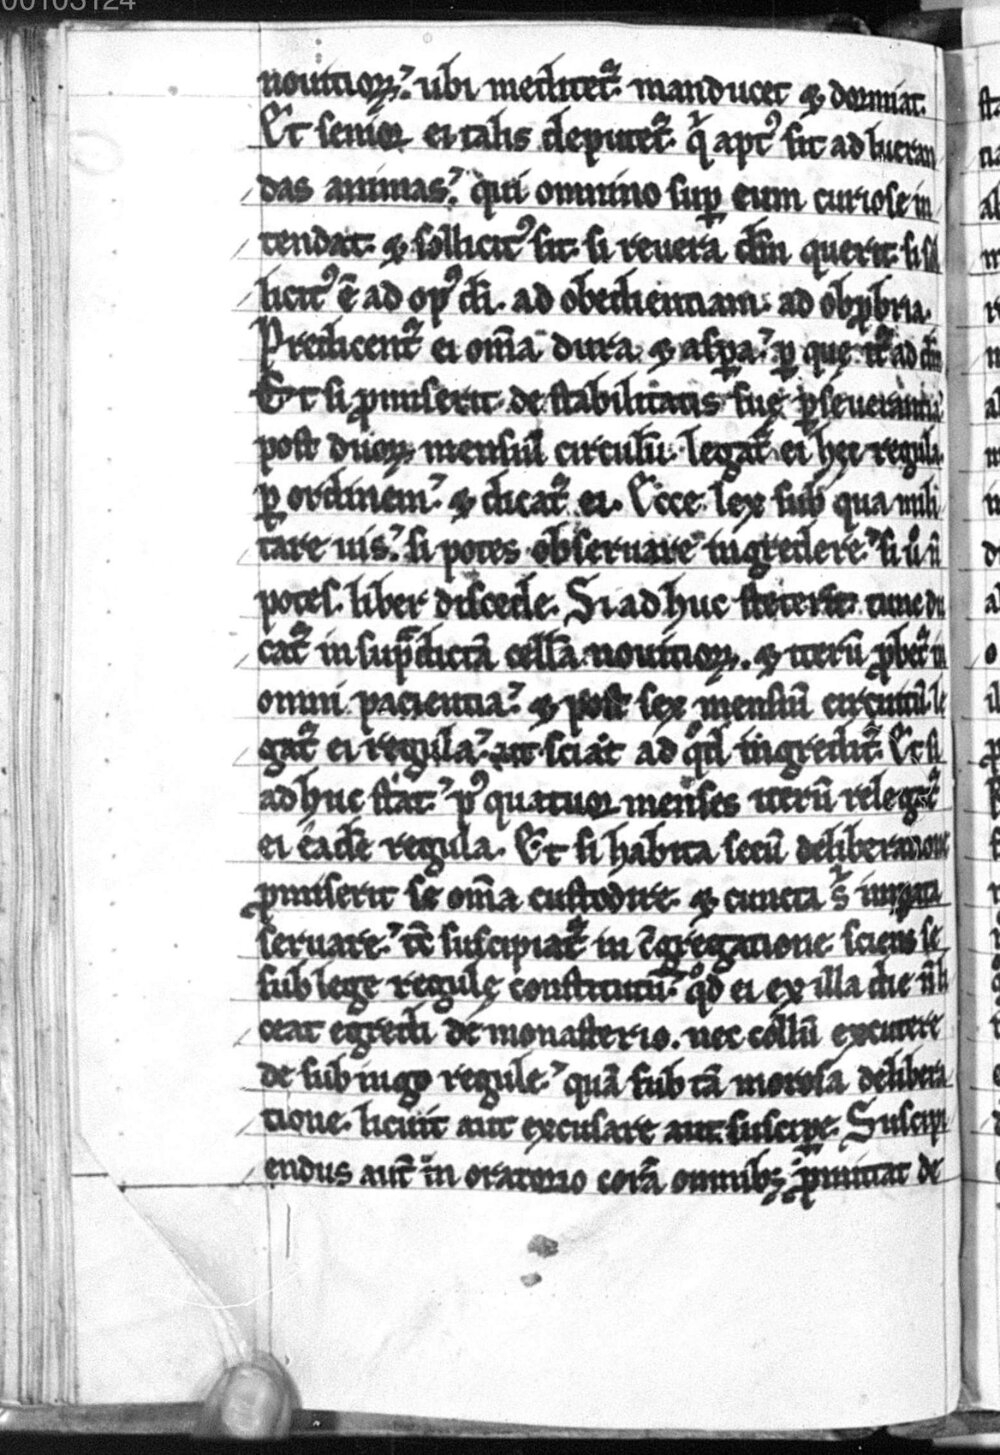 00103124
nouitioꝝ. ubi meditet᷑ manducet ⁊ dormiat.
Et senior ei talis deputet᷑. q̇ apt᷒ sit ad lucran
das animas. qui omnino suꝑ eum curiose in
tendat. ⁊ sollicit᷒ sit. si reuera dm̄ querit. si sol
licit᷒ ē ad op᷒ di. ad obedientiam. ad obꝓbria.
Predicent᷑ ei om̄a dura ⁊ asꝑa. ꝑ que it᷑ ad dm̄
Et si ꝓmiserit de stabilitatis sue ꝑseuerantia
post duoꝝ mensiū circulū. legat᷑ ei hec regula
ꝑ ordinem. ⁊ dicat᷑ ei. Ecce lex sub qua mili
tare uis. si potes obseruare ingredere. si ů n̄
potes. liber discede. Si adhuc steterit. tunc du
cat᷑ in sup̄dictā cellā nouitioꝝ. ⁊ iterū ꝓbet᷑ in
omni pacientia. ⁊ post sex mensiū circuitū le
gat᷑ ei regula. ut sciat ad qd̄ ingredit᷑. Et si
adhuc stat. p᷒ quatuor menses iterū relegat᷑
ei eadē regula. Et si habita secū deliberatione
ꝓmiserit se om̄a custodire. ⁊ cuncta s̄ imꝑata
seruare. tc̄ suscipiat᷑ in ꝯgregatione. sciens se
sub lege regule constitutū. qd̄ ei ex illa die n̄ li
ceat egredi de monasterio. nec collū excutere
de sub iugo regule. quā sub tā morosa delibera
tione. licuit aut excusare aut suscipe. Suscipi
endus aut̄ in oratorio corā omnibꝫ ꝓmittat de